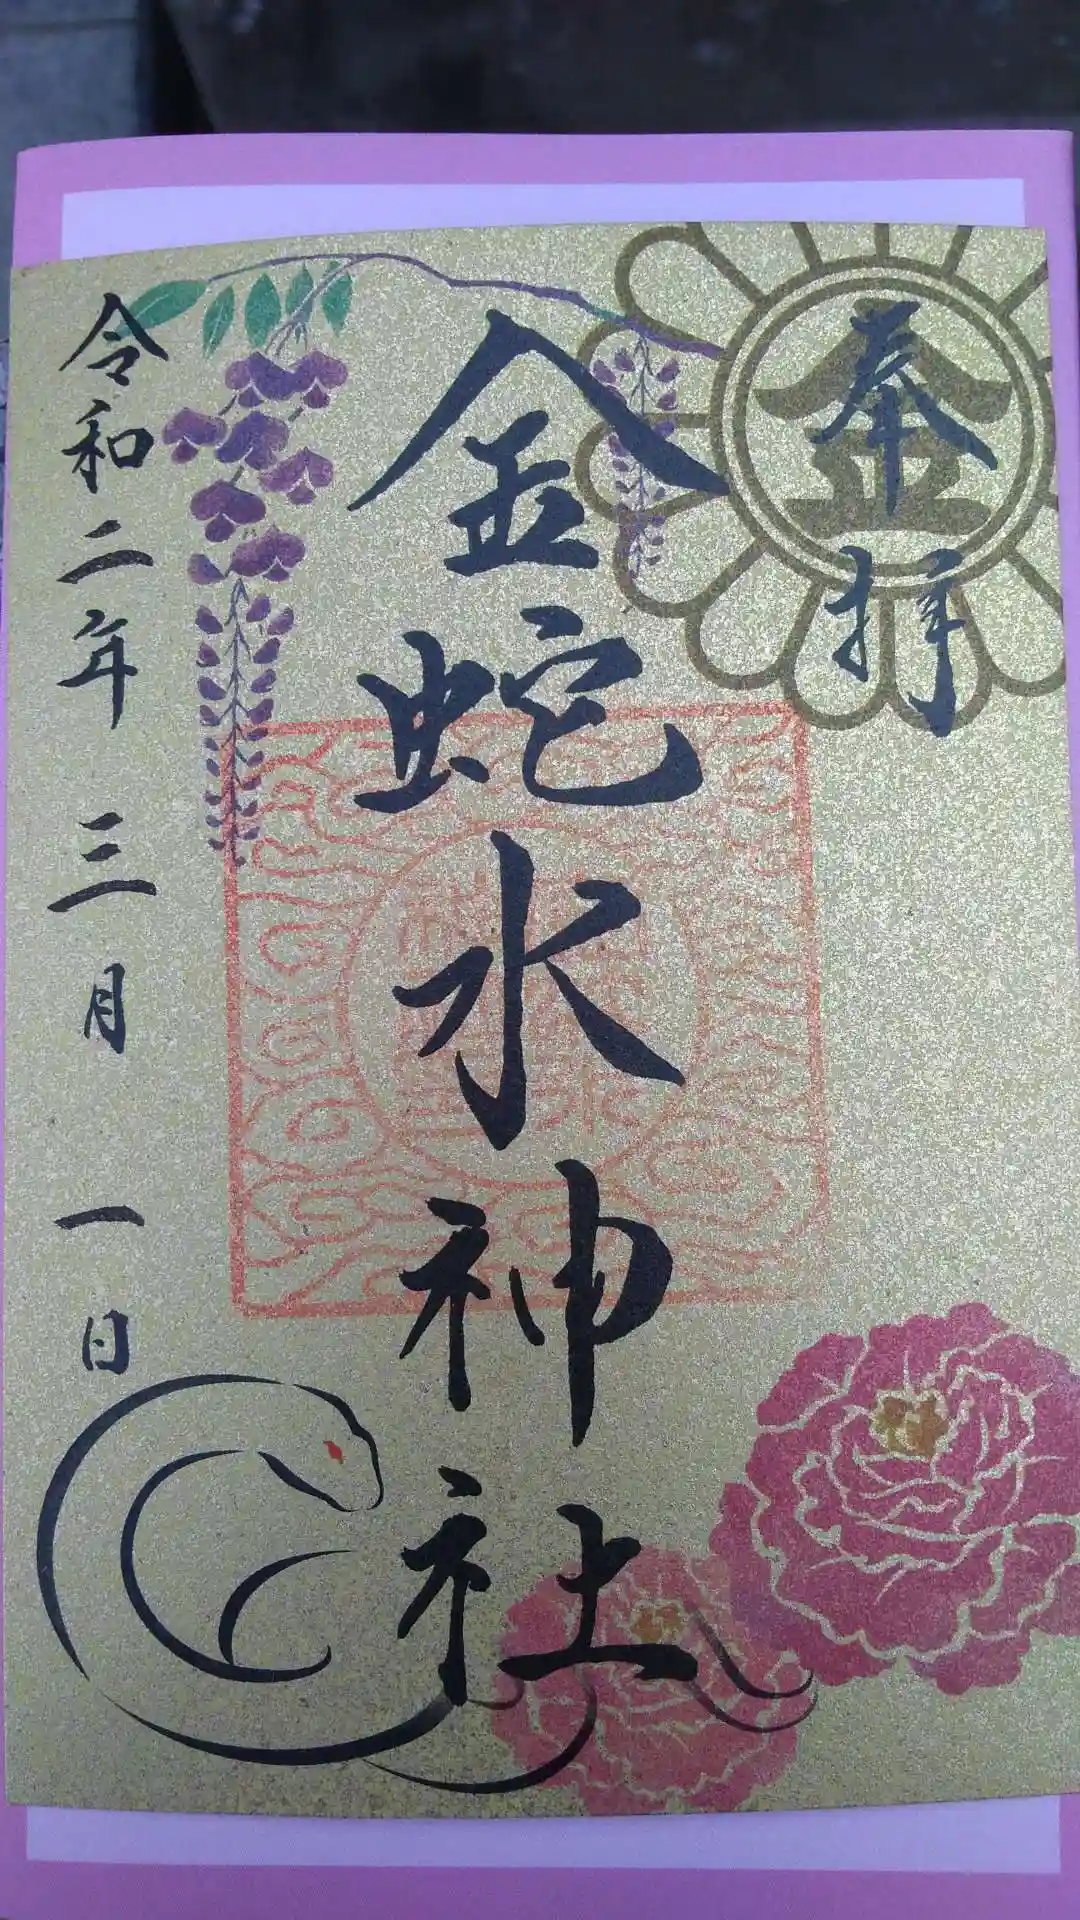 奉拝
金
金蛇水神社
令和二年三月一日